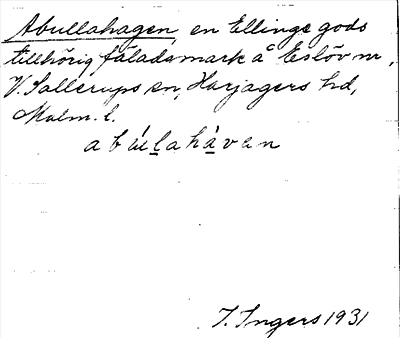 Abullahagen, en Ellinge gods
tillhörig fäladsmark å Eslöv nr,
V. Sallerups sn, Harjagers hd,
Malm. l.
abúllahàvan
I. Ingers 1931